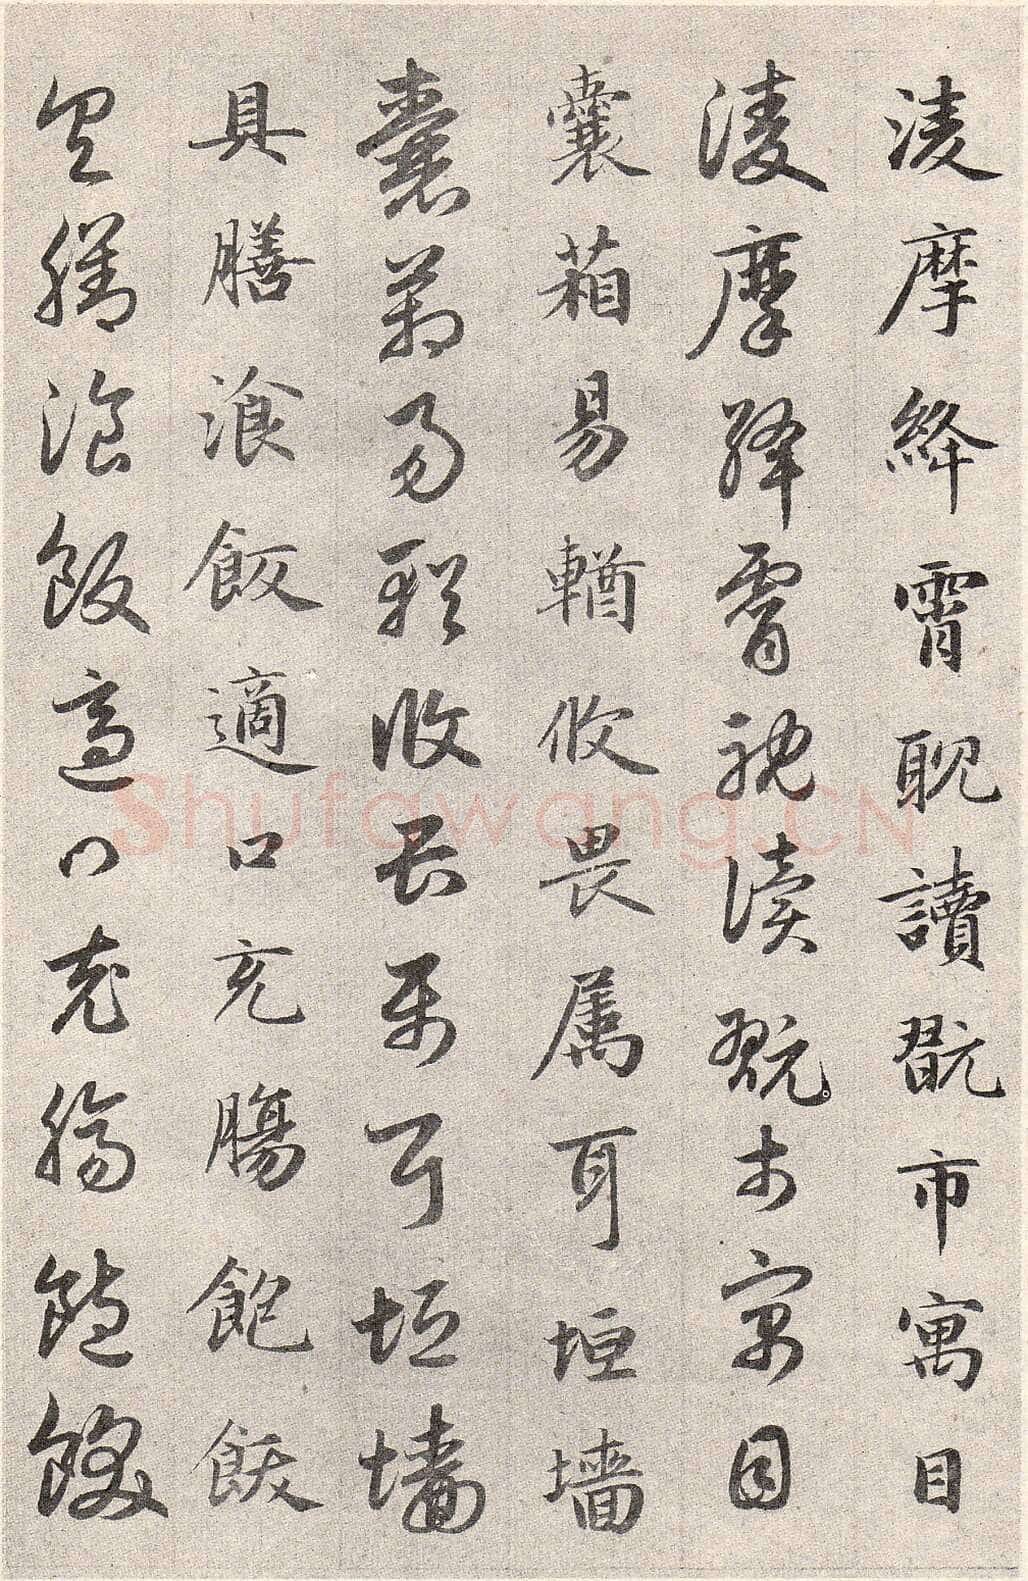 淩摩絳霄耽讀翫市寓目
淩摩絳霄耽讀翫市寓目
囊葙易輶攸畏属耳垣墙
囊葙易輶攸畏属耳垣墙
具膳湌飯適口充腸飽飫
具膳湌飯適口充腸飽飫
Shufawang.CN